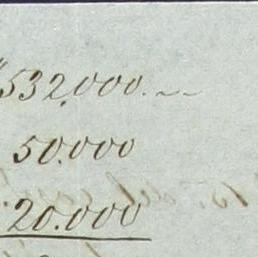 532.000.
50.000
20.000